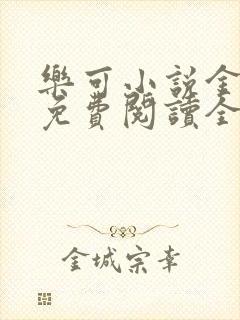 樂可小說全
免費閱讀全
金城宗幸